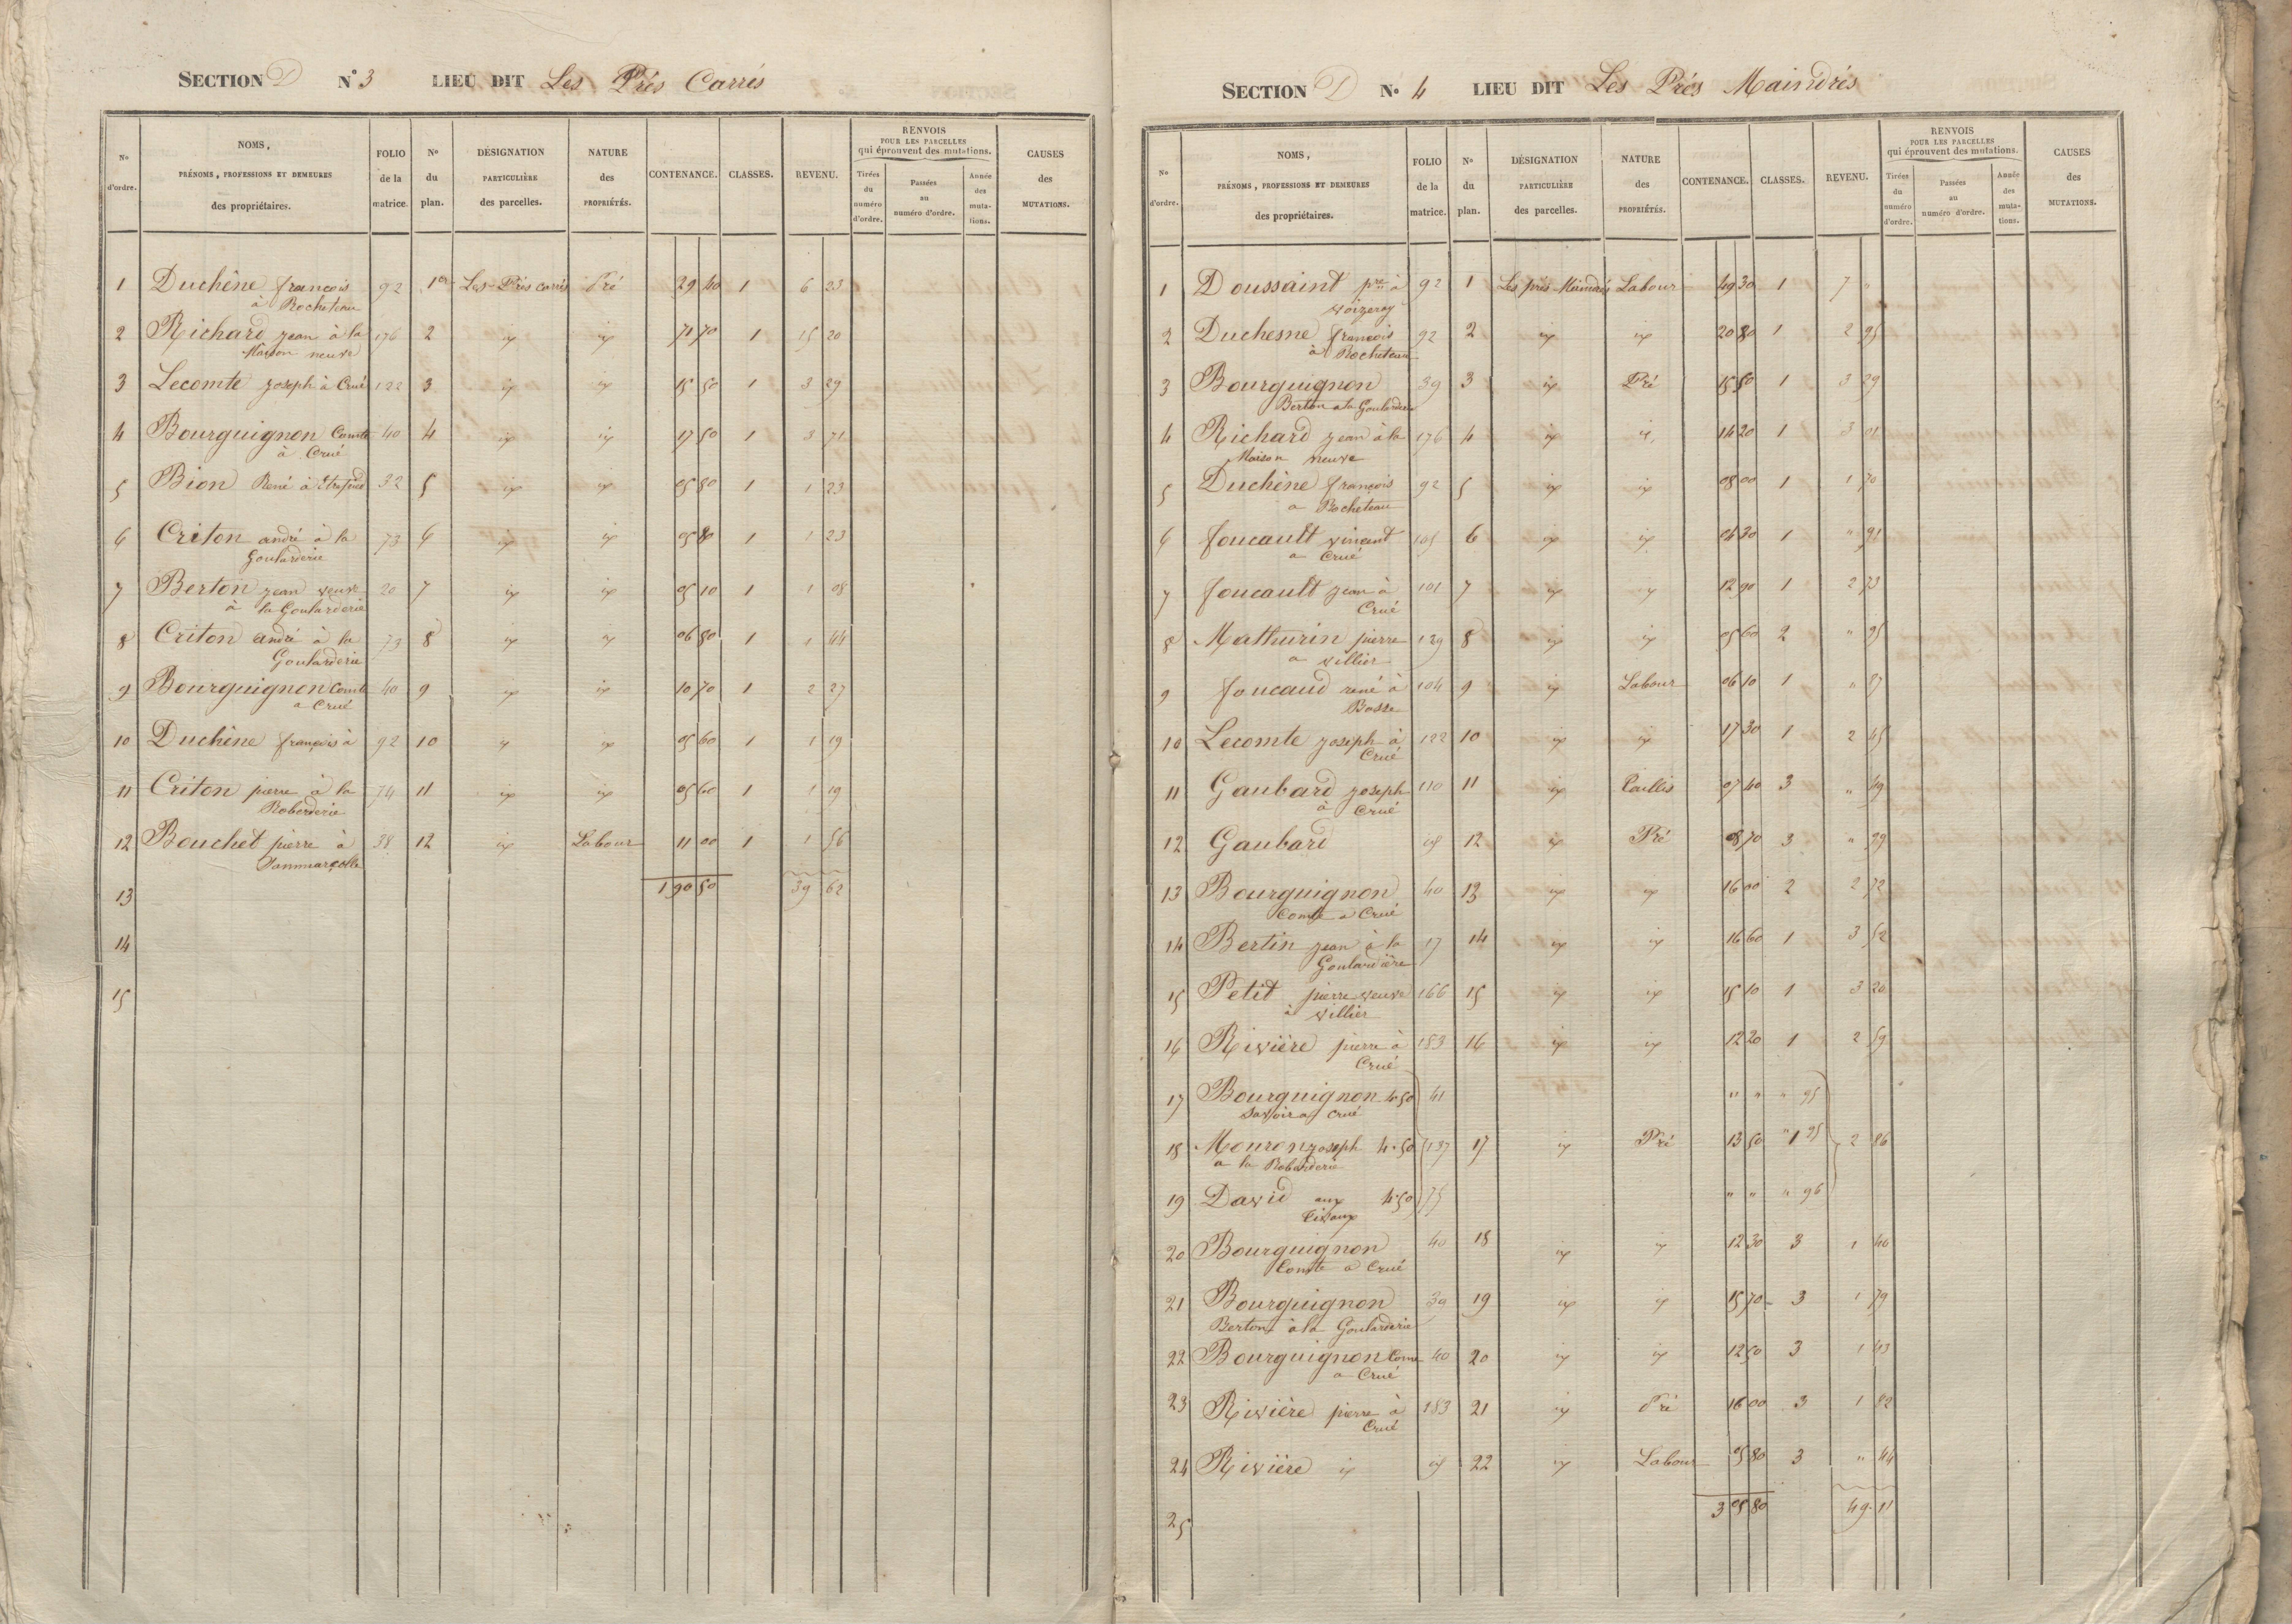 SECTION D N° 3 LIEU DIT Les Prés Carrés
N° d'ordre. NOMS, PRÉNOMS, PROFESSIONS ET DEMEURES des propriétaires. FOLIO de la matrice. N° du plan. DÉSIGNATION PARTICULIÈRE des parcelles. NATURE des PROPRIÉTÉS. CONTENANCE. CLASSES. REVENU. RENVOIS POUR LES PARCELLES qui éprouvent des mutations. Tirées du numéro d'ordre. Passées au numéro d'ordre. Année des mutations. CAUSES des MUTATIONS.
1 Duchêne françois 92 1er Les Prés carrés Pré 29 40 1 6 23
à Rocheteau
2 Richard jean à la 176 2 id 71 70 1 15 20
Maison neuve
3 Lecomte joseph à Crué 122 3 id id 15 50 1 3 29
4 Bourguignon Comte 40 4 id id 17 50 1 3 71
à Crué
5 Bion René à 32 5 id id 05 80 1 1 23
6 Criton andré à la 73 6 id id 05 80 1 1 23
Goularderie
7 Berton jean veuve 20 7 id id 05 10 1 1 08
à la Goularderie
8 Criton andré à la 73 8 id id 06 80 1 1 44
Goularderie
9 Bourguignon Comte 40 9 id id 10 70 1 2 27
a Crué
10 Duchêne françois à 92 10 id id 05 60 1 1 19
11 Criton pierre à la 74 11 id id 05 60 1 1 19
Roberderie
12 Bouchet pierre à 38 12 id Labour 11 00 1 1 56
Dammarçolle
13 1 90 50 39 62
14
15
SECTION D N° 4 LIEU DIT Les Prés Maindrés
N° d'ordre. NOMS, PRÉNOMS, PROFESSIONS ET DEMEURES des propriétaires. FOLIO de la matrice. N° du plan. DÉSIGNATION PARTICULIÈRE des parcelles. NATURE des PROPRIÉTÉS. CONTENANCE. CLASSES. REVENU. RENVOIS POUR LES PARCELLES qui éprouvent des mutations. Tirées du numéro d'ordre. Passées au numéro d'ordre. Année des mutations. CAUSES des MUTATIONS.
1 Doussaint pre à 92 1 Les prés Maindrés Labour 49 30 1 7 "
2 Duchesne françois 92 2 id id 20 80 1 2 95
à Rocheteau
3 Bourguignon 39 3 id Pré 15 50 1 3 29
Berton a la Goularderie
4 Richard jean à la 176 4 id id 14 20 1 3 01
Maison neuve
5 Duchêne françois 92 5 id id 08 00 1 1 70
a Rocheteau
6 foucault vincent 105 6 id id 04 30 1 " 91
a Crué
7 foucault jean à 101 7 id id 12 90 1 2 73
Crué
8 Mathurin pierre 129 8 id id 05 60 2 " 95
a villier
9 foucaud rené à 104 9 id Labour 06 10 1 " 87
Bosse
10 Lecomte joseph à 122 10 id id 17 30 1 2 45
Crué
11 Gaubard joseph 110 11 id Taillis 07 40 3 " 49
à Crué
12 Gaubard id 12 id Pré 08 70 3 " 99
13 Bourguignon 40 13 id id 16 00 2 2 72
Comte a Crué
14 Bertin jean à la 17 14 id id 16 60 1 3 52
Goulardière
15 Petit pierre veuve 166 15 id id 15 10 1 3 20
à villier
16 Rivière pierre à 183 16 id id 12 20 1 2 59
Crué
17 Bourguignon 4.50 41 " " " 95
Savoir a Crué
18 Mouron joseph 4.50 137 17 id Pré 13 50 " 1 95 2 86
a la Roberderie
19 David aux 4.50 75 " " " 96
20 Bourguignon 40 18 id id 12 30 3 1 40
Comte a Crué
21 Bourguignon 39 19 id id 15 70 3 1 79
Berton à la Goularderie
22 Bourguignon Comte 40 20 id id 12 50 3 1 43
a Crué
23 Rivière pierre à 183 21 id Pré 16 00 3 1 82
Crué
24 Rivière id id 22 id Labour 05 80 3 " 44
3 05 80 49.11
25